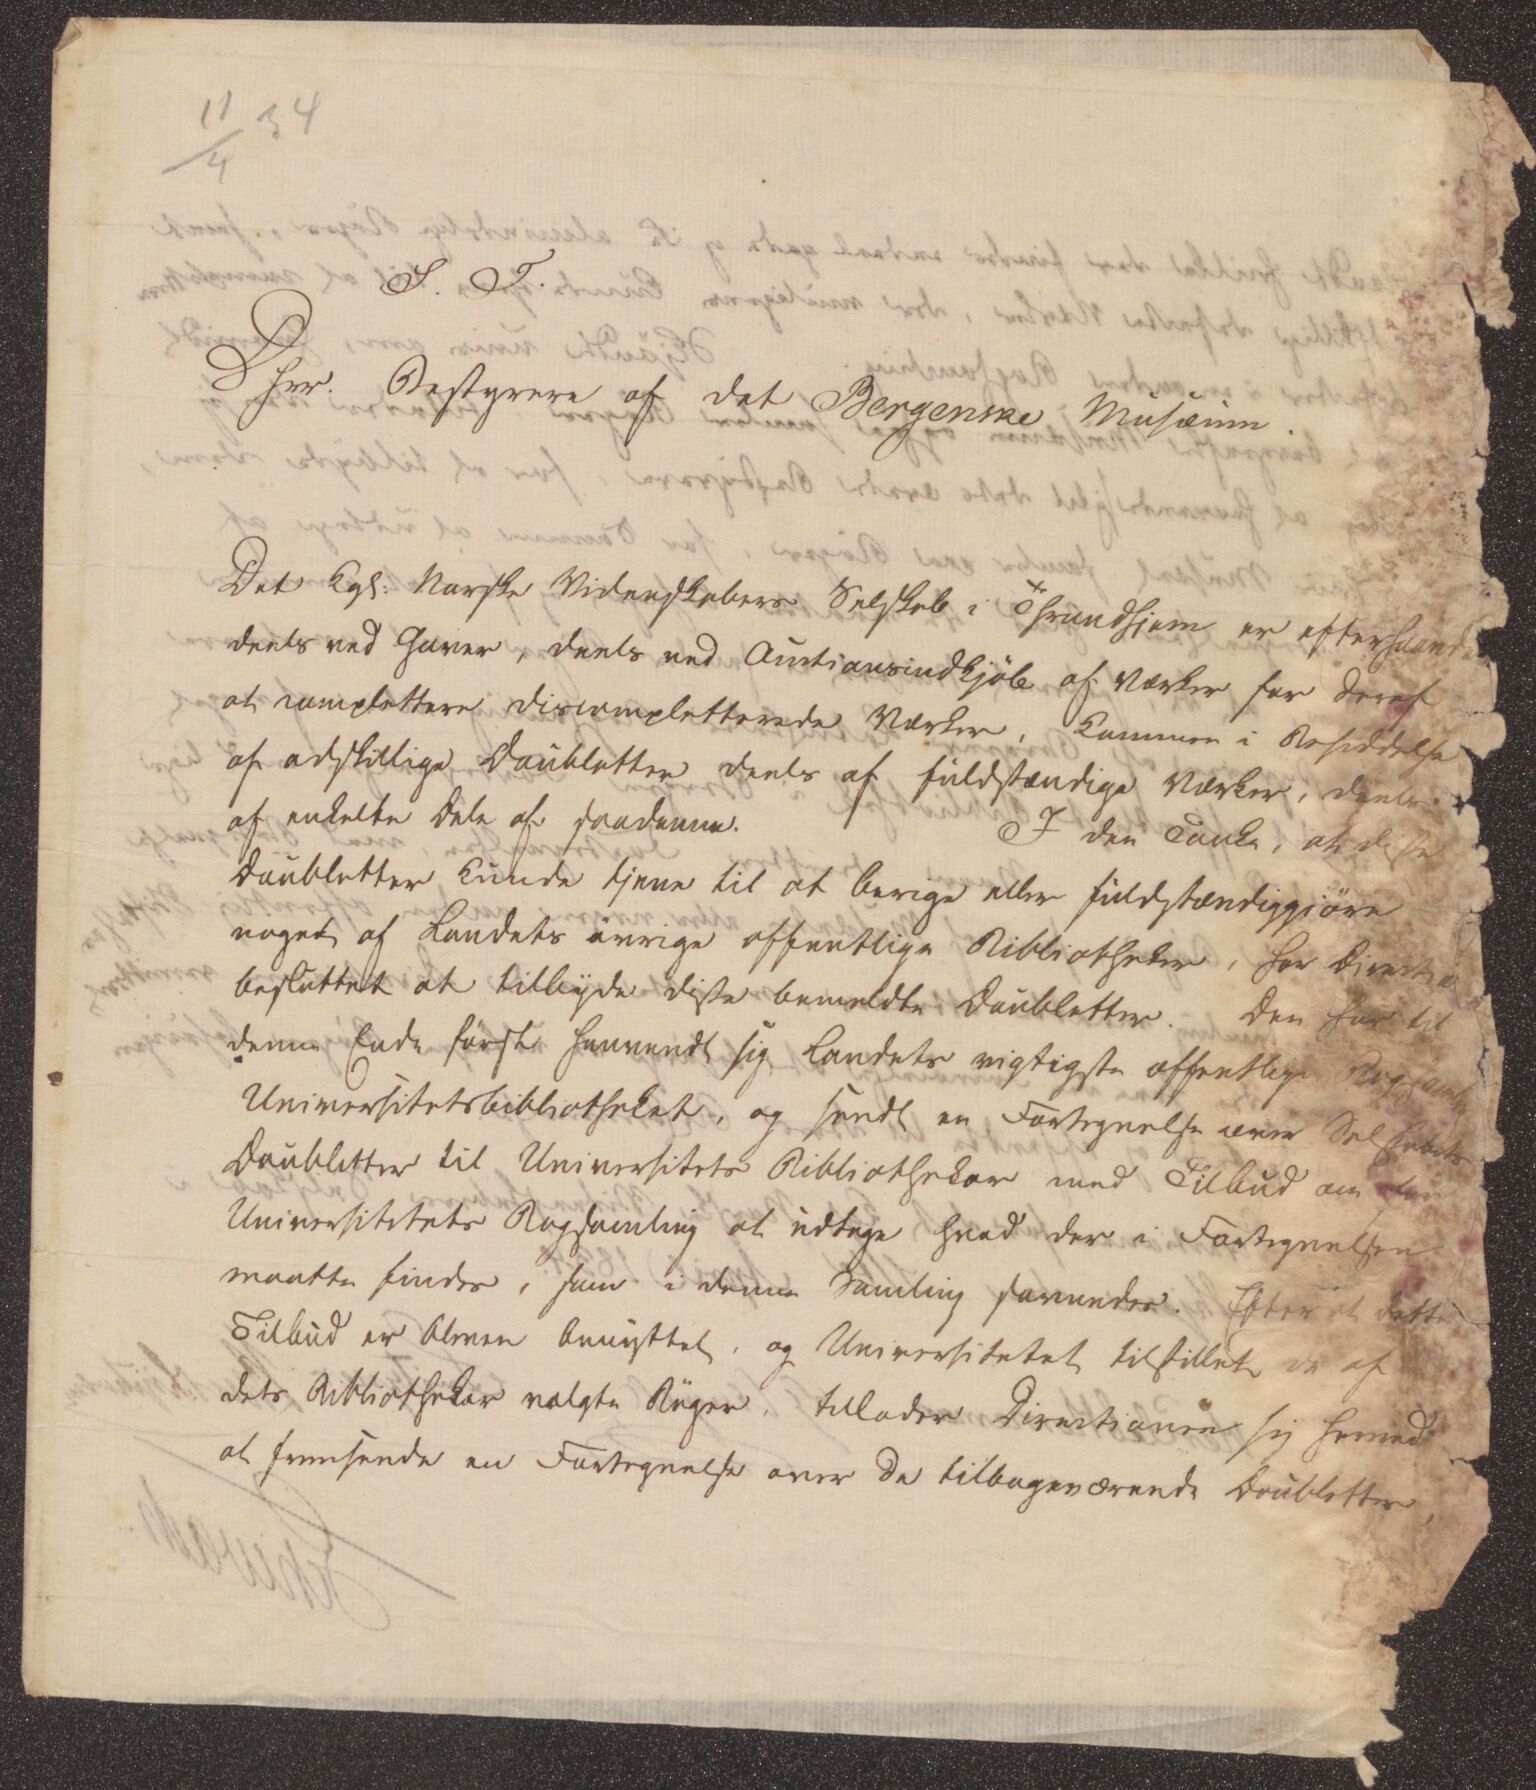 11/4 34
S. T.
Dhrr. Bestyrere af det Bergenske Musæum.
Det Kgl: Norske Videnskabers Selskab i Thrundhjem er efterhaanden
deels ved Gaver, deels ved Auctionsindkjöb af Værker for deraf
at complettere discompletterede Værker, kommen i Besiddelse
af adskillige Doubletter deels af fuldstændige Værker, deels
af enkelte Dele af saadanne. I den Tanke, at disse
Doubletter kunde tjene til at berige eller fuldstændiggjöre
noget af Landets övrige offentlige Bibliotheker, har Direction
besluttet at tilbyde disse bemeldte Doubletter. Den har til
denne Ende först henvendt sig Landets vigtigste offentlige Bogsamling
Universitetsbibliotheket, og sendt en Fortegnelse over Selskabets
Doubletter til Universitets Bibliothekar med Tilbud om for
Universitetets Bogsamling at udtage hvad der i Fortegnelsen
maatte findes, som i denne Samling savnedes. Efter at dette
Tilbud er bleven benyttet, og Universitetet tilstillet de af
dets Bibliothekar valgte Böger, tillader Directionen sig herved
at fremsende en Fortegnelse over de tilbageværende Doubletter,